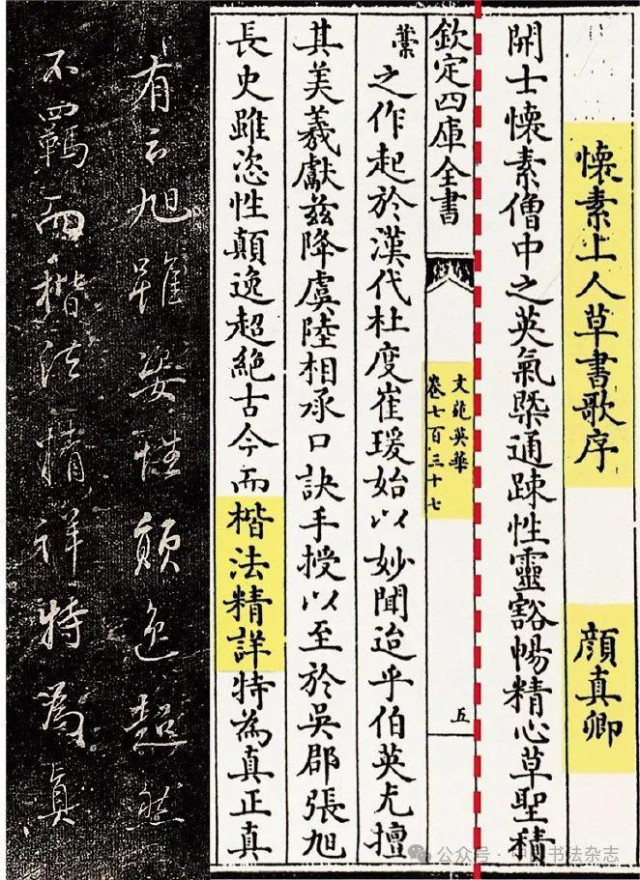 懷素上人草書歌序 顔真卿
開士懷素僧中之英氣槩通踈性靈豁暢精心草聖積
欽定四庫全書
文苑英華
卷七百三十七
五
藁之作起於漢代杜度崔瑗始以妙聞迨乎伯英尤擅
其美羲獻兹降虞陸相承口訣手授以至於吳郡張旭
長史雖恣性顛逸超絶古今而楷法精詳特為真正真
有云旭雖姿性顛逸超然
不羈而楷法精詳特為真
公众号·中国书法杂志